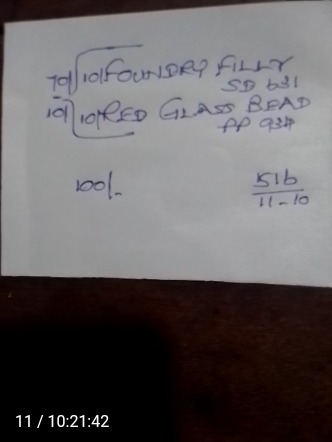 70/ 10/ FOUNDRY FILLY
SD 631
10/ 10/ RED GLASS BEAD
PP 934
100/-
516
11-10
11 / 10:21:42